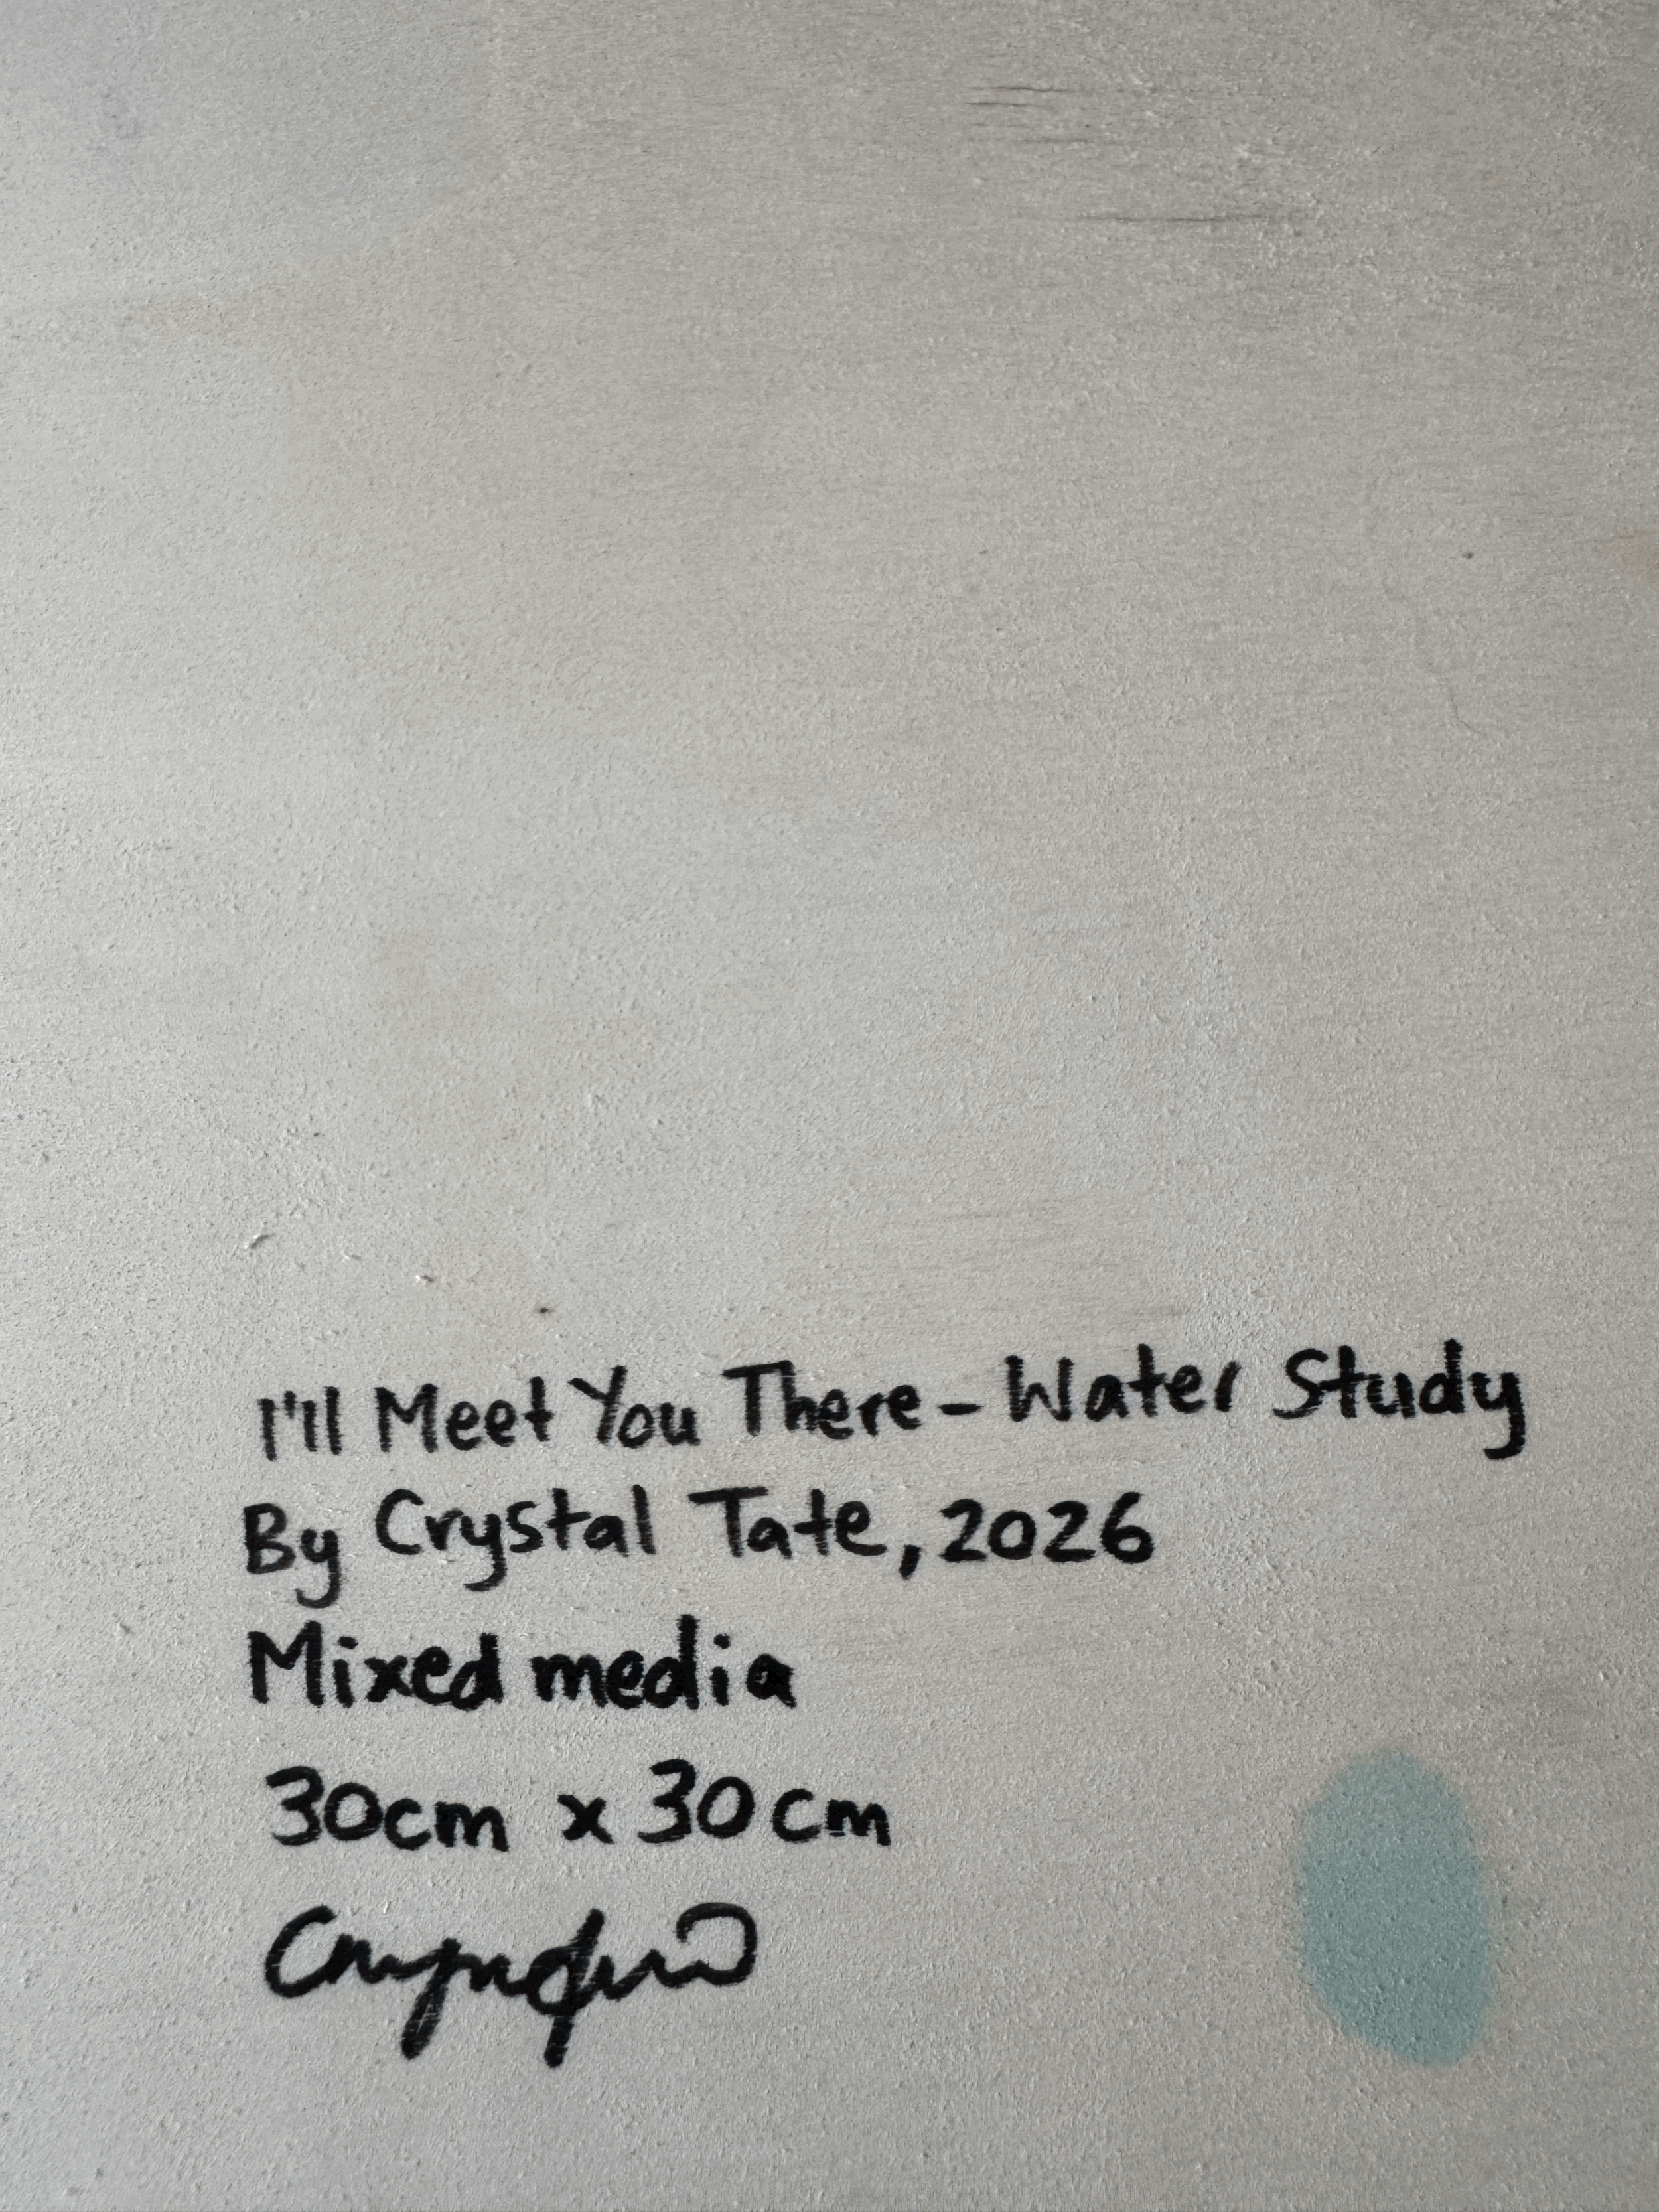 I'll Meet You There - Water Study
By Crystal Tate, 2026
Mixed media
30cm x 30cm